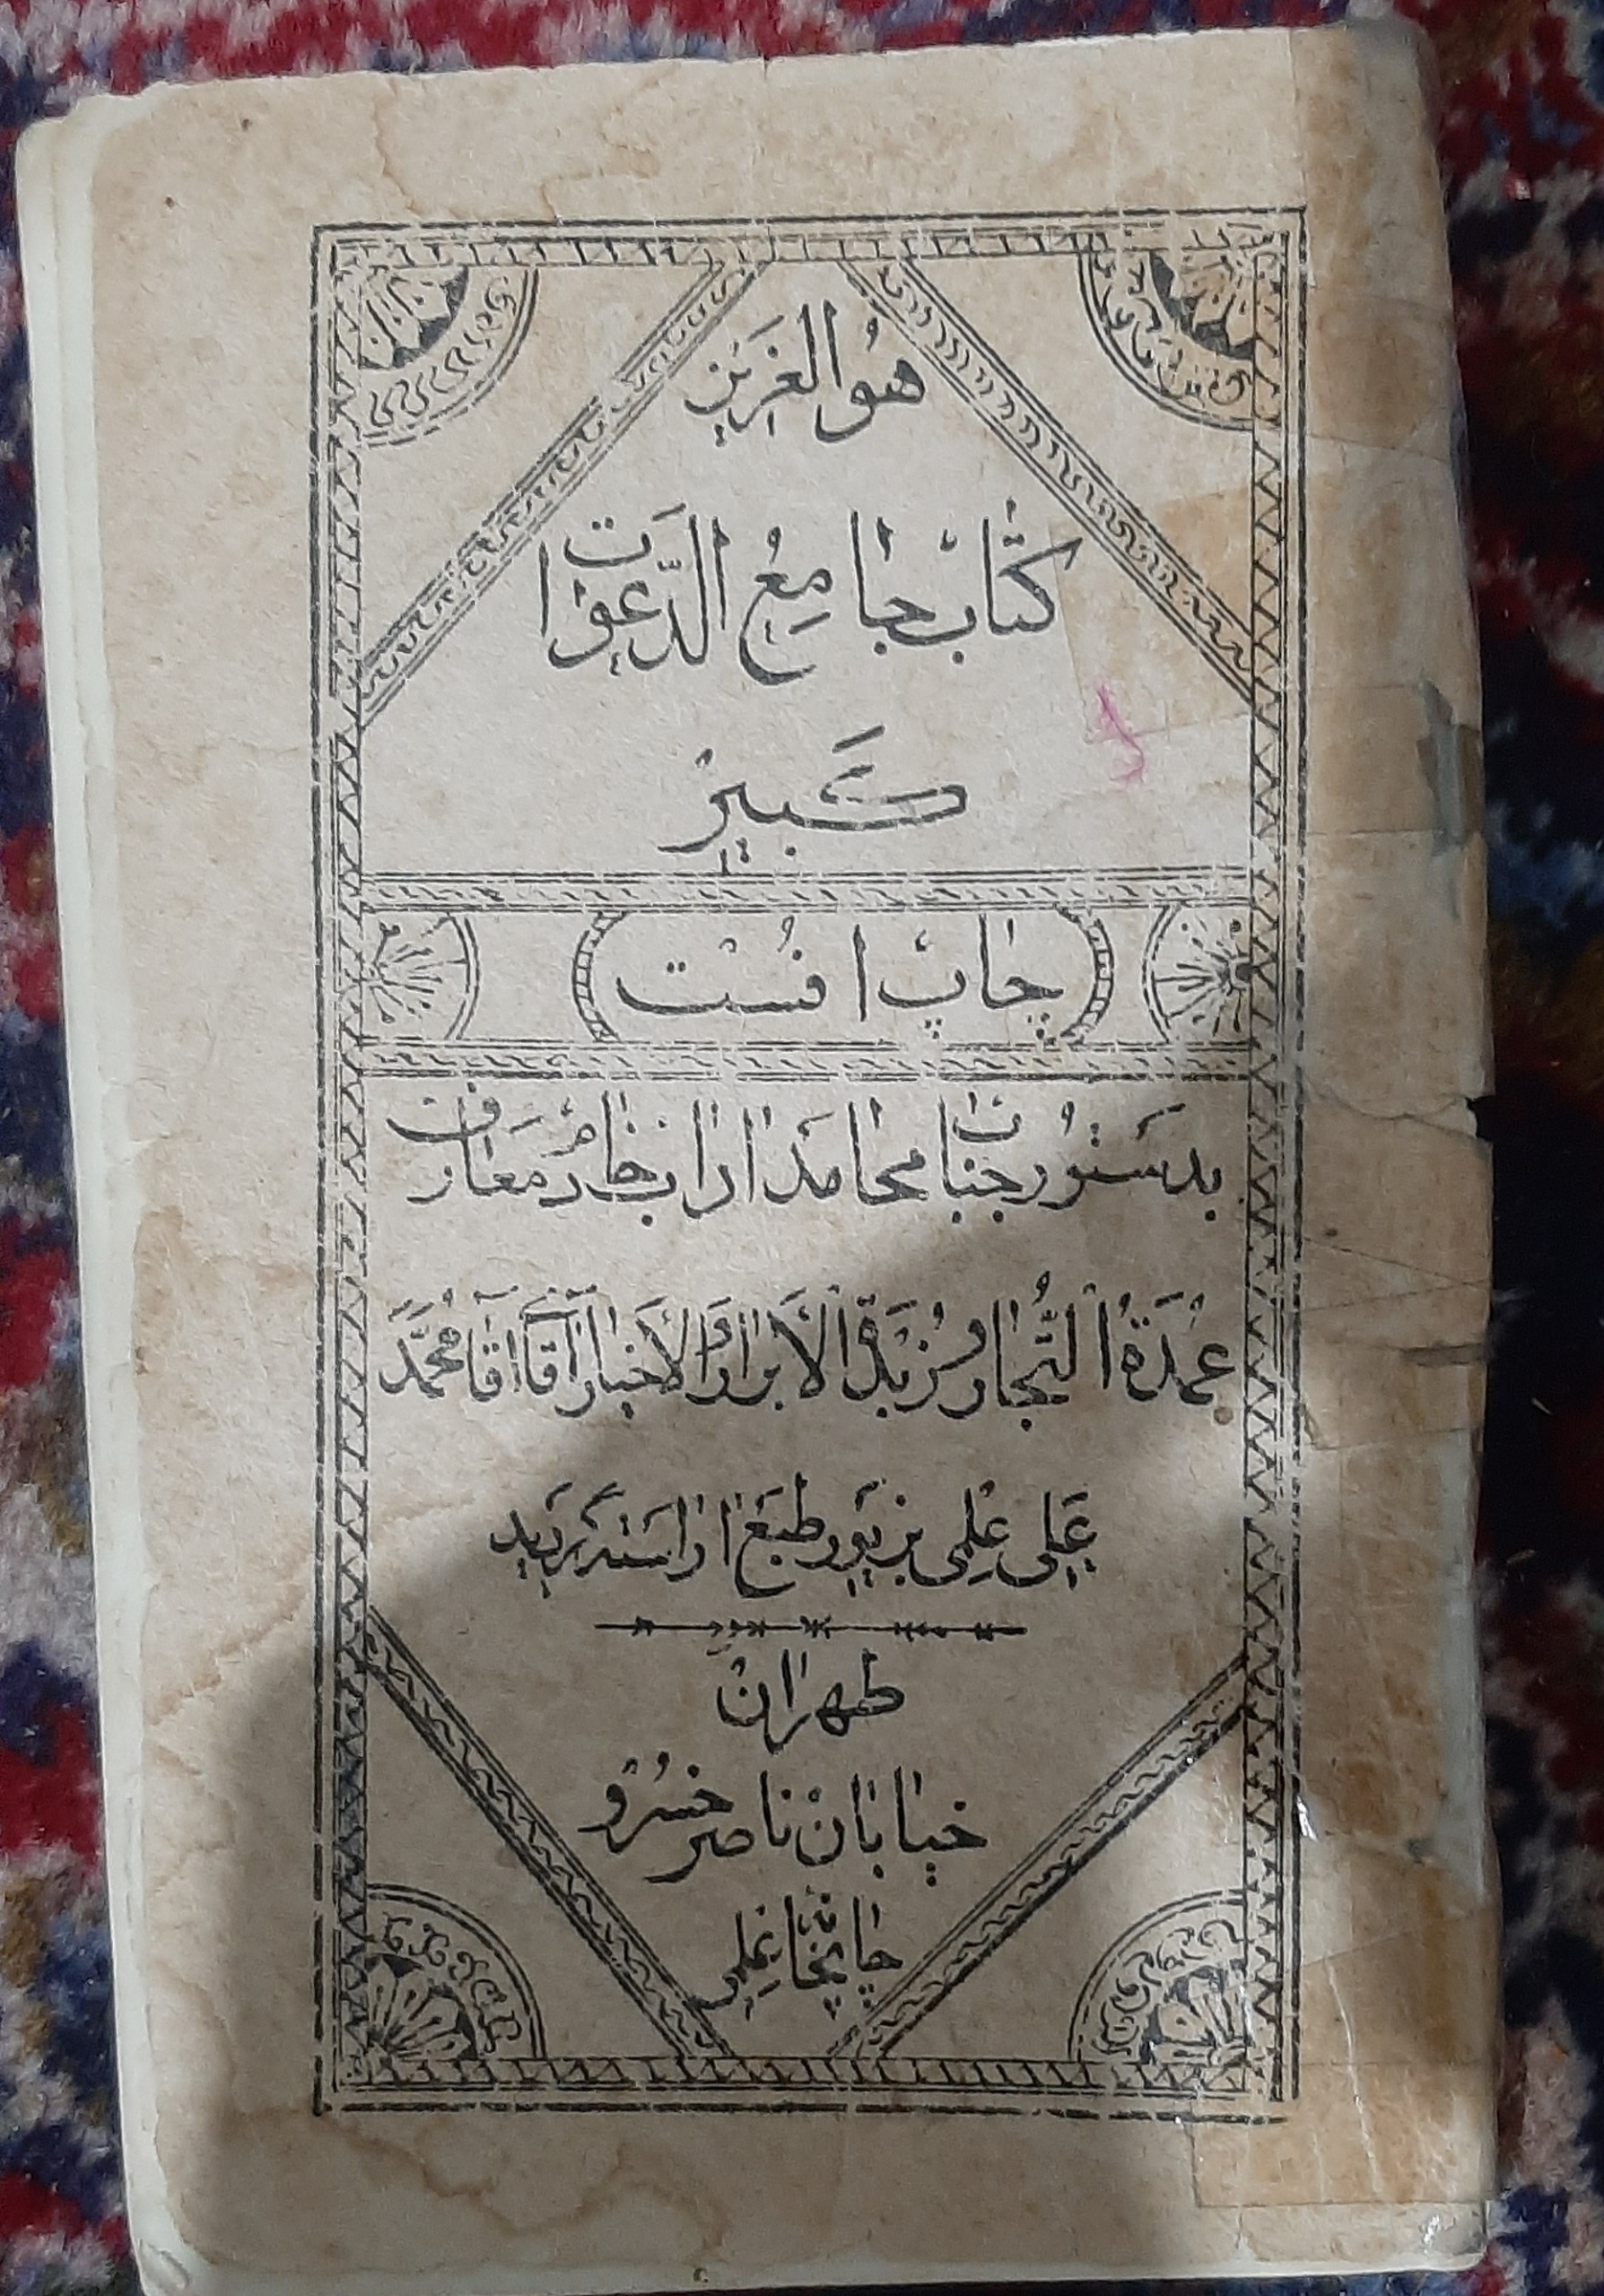 هو العزیز
کتاب جامع الدعوات
کبیر
چاپ افست
بدستور جناب محامد اداب خادم معارف
عمدة التجار و زبدة الابرار و الاخیار آقای آقا محمد
علی علمی بزیور طبع اراسته گردید
طهران
خیابان ناصر خسرو
چاپخانه علمی